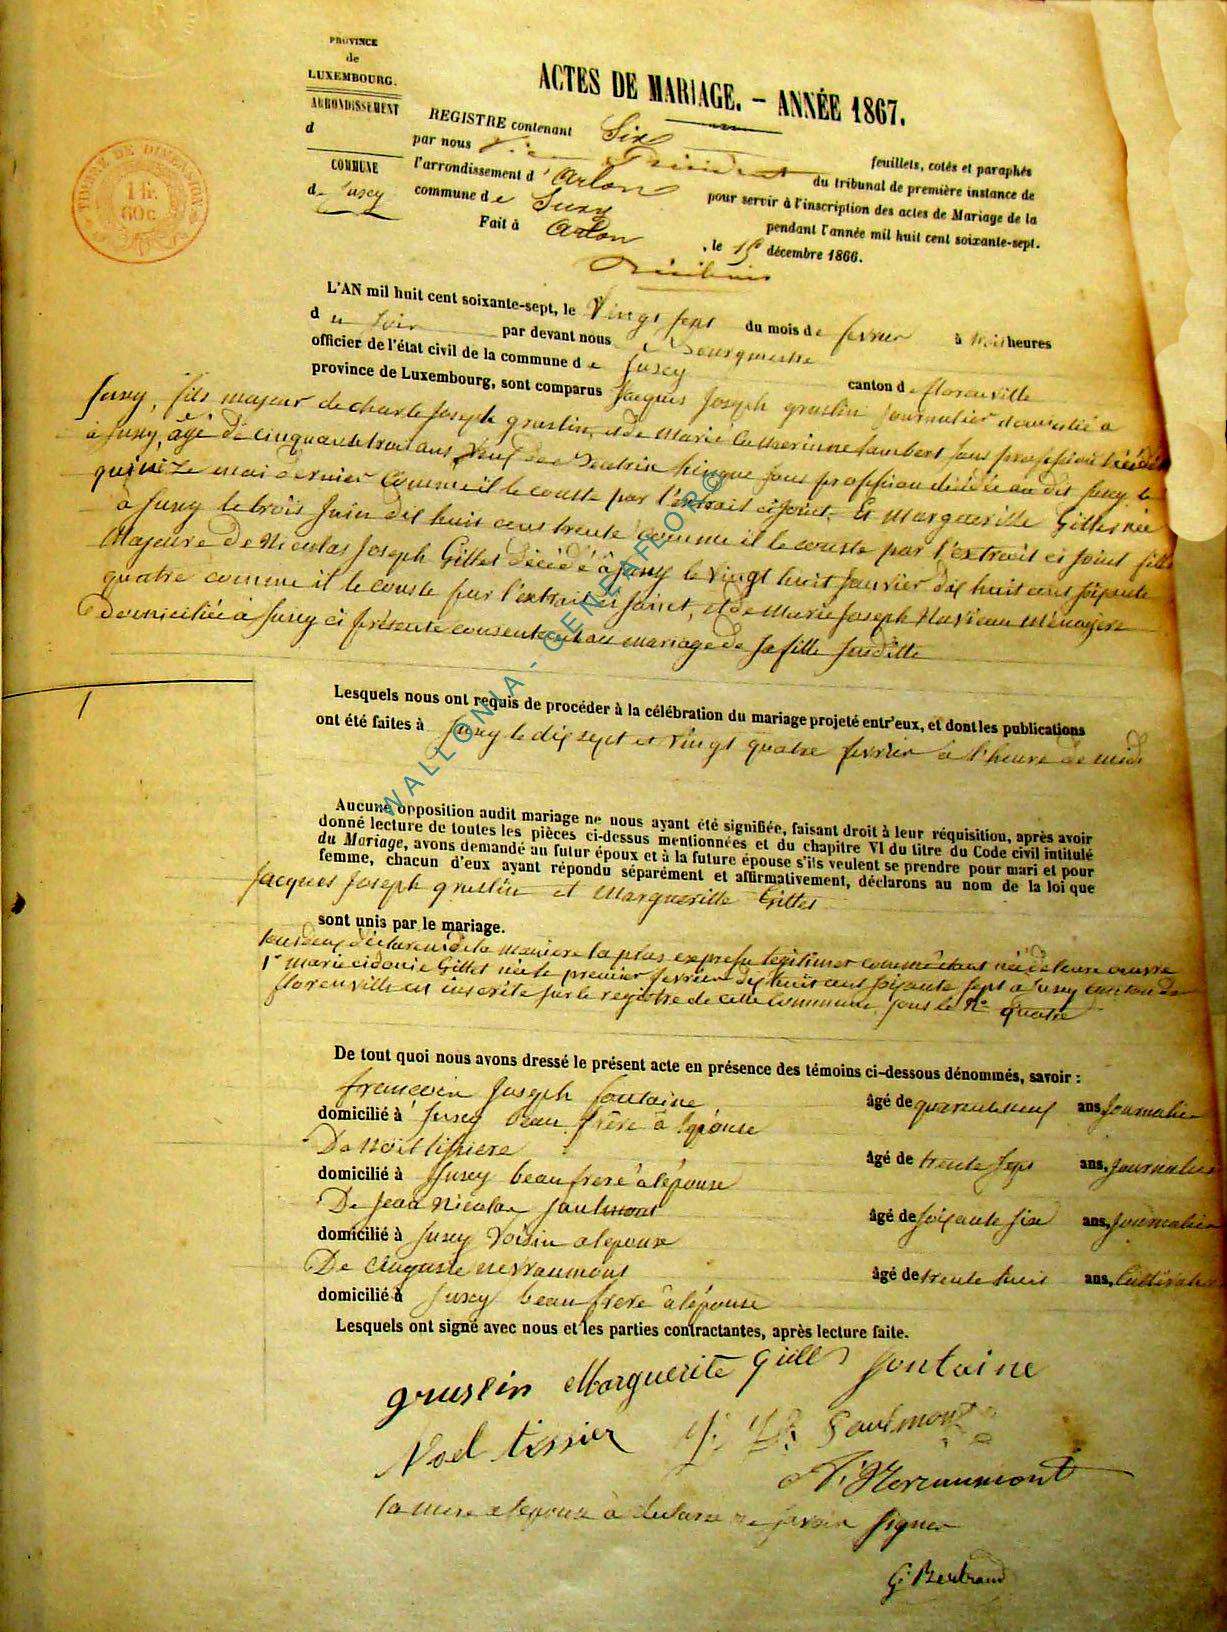 PROVINCE
de
LUXEMBOURG.
ARRONDISSEMENT
d
COMMUNE
de Suxcy
TIMBRE DE DIMENSION
1 fr.
60 c.
ACTES DE MARIAGE. – ANNÉE 1867.
REGISTRE contenant Six feuillets, cotés et paraphés
par nous Vice Président du tribunal de première instance de
l'arrondissement d'Arlon pour servir à l'inscription des actes de Mariage de la
commune de Suxy pendant l'année mil huit cent soixante-sept.
Fait à Arlon, le 15 décembre 1866.
L'AN mil huit cent soixante-sept, le Vingt sept du mois de fevrier à trois heures
d u soir par devant nous Bourgmestre
officier de l'état civil de la commune de Suxcy canton de florenville
province de Luxembourg, sont comparus Jacques Joseph gruslin Journalier domicilié a
Suxcy, fils majeur de charle Joseph gruslin, et de Marie Catherinne Lambert sans profession décédé
à Suxcy, âgé de cinquante trois ans, Veuf de sans profession décédée au dit Suxcy le
quinize mai dernier comme il le conste par l'extrait cijoint, Et Margueritte Gillet née
à Suxcy le trois Juin dix huit cent trente comme il le conste par l'extrait ci joint fille
Majeure de Nicolas Joseph Gillet décédé à Suxcy le vingt huit Janvier dix huit cent soixante
quatre comme il le conste par l'extrait ci Joint, et de Marie Joseph Ménagère
Domiciliée à Suxcy ci présente consentant au mariage de sa fille susditte
Lesquels nous ont requis de procéder à la célébration du mariage projeté entr'eux, et dont les publications
ont été faites à Suxcy le dix sept et vingt quatre fevrier à l'heure de midi
Aucune opposition audit mariage ne nous ayant été signifiée, faisant droit à leur réquisition, après avoir
donné lecture de toutes les pièces ci-dessus mentionnées et du chapitre VI du titre du Code civil intitulé
du Mariage, avons demandé au futur époux et à la future épouse s'ils veulent se prendre pour mari et pour
femme, chacun d'eux ayant répondu séparément et affirmativement, déclarons au nom de la loi que
Jacques Joseph gruslin et Margueritte Gillet
sont unis par le mariage.
tous deux déclarent de la maniere la plus expresse légitimer comme étant née de leurs œuvre
1° Marie cidonie Gillet née le premier fevrier dix huit cent soixante sept a Suxy canton de
florenville et inscrite sur le registre de cette commune, sous le N° quatre
De tout quoi nous avons dressé le présent acte en présence des témoins ci-dessous dénommés, savoir :
francois Joseph fontaine âgé de quarante neuf ans, Journalier
domicilié à Suxcy beau frère à lépouse
De Noël tissiere âgé de trente sept ans, Journalier
domicilié à Suxcy beau frere à lépouse
De Jean Nicolas Saulmont âgé de soixante six ans, Journalier
domicilié à Suxcy Voisin a lepouse
De Auguste nevraumont âgé de trente huit ans, Cultivateur
domicilié à Suxcy beau frere à lépouse
Lesquels ont signé avec nous et les parties contractantes, après lecture faite.
gruslin Marguerite Gillet fontaine
Noel tissier J. N. Saulmont
A. Nevraumont
la mere a lepouse à déclaré ne savoir signer
G. Bertrand
WALLONIA - GENEAFLOR©